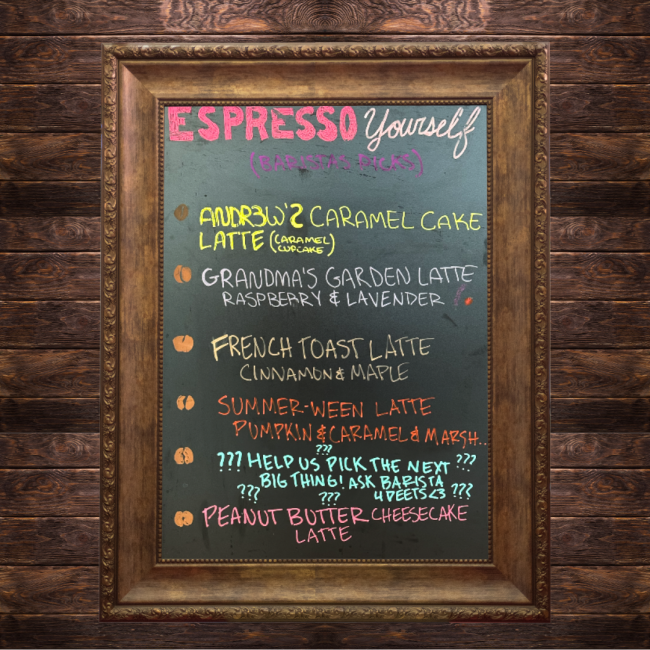 ESPRESSO Yourself
(BARISTAS PICKS)
ANDR3W'S CARAMEL CAKE
LATTE (CARAMEL CUPCAKE)
GRANDMA'S GARDEN LATTE
RASPBERRY & LAVENDER
FRENCH TOAST LATTE
CINNAMON & MAPLE
SUMMER-WEEN LATTE
PUMPKIN & CARAMEL & MARSH..
???
??? HELP US PICK THE NEXT ???
BIG THING! ASK BARISTA
??? ??? 4 DEETS <3 ???
PEANUT BUTTER CHEESECAKE
LATTE